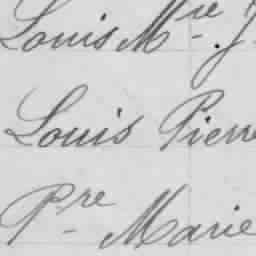 Louis Mie. J
Louis Pierre
Pre Marie